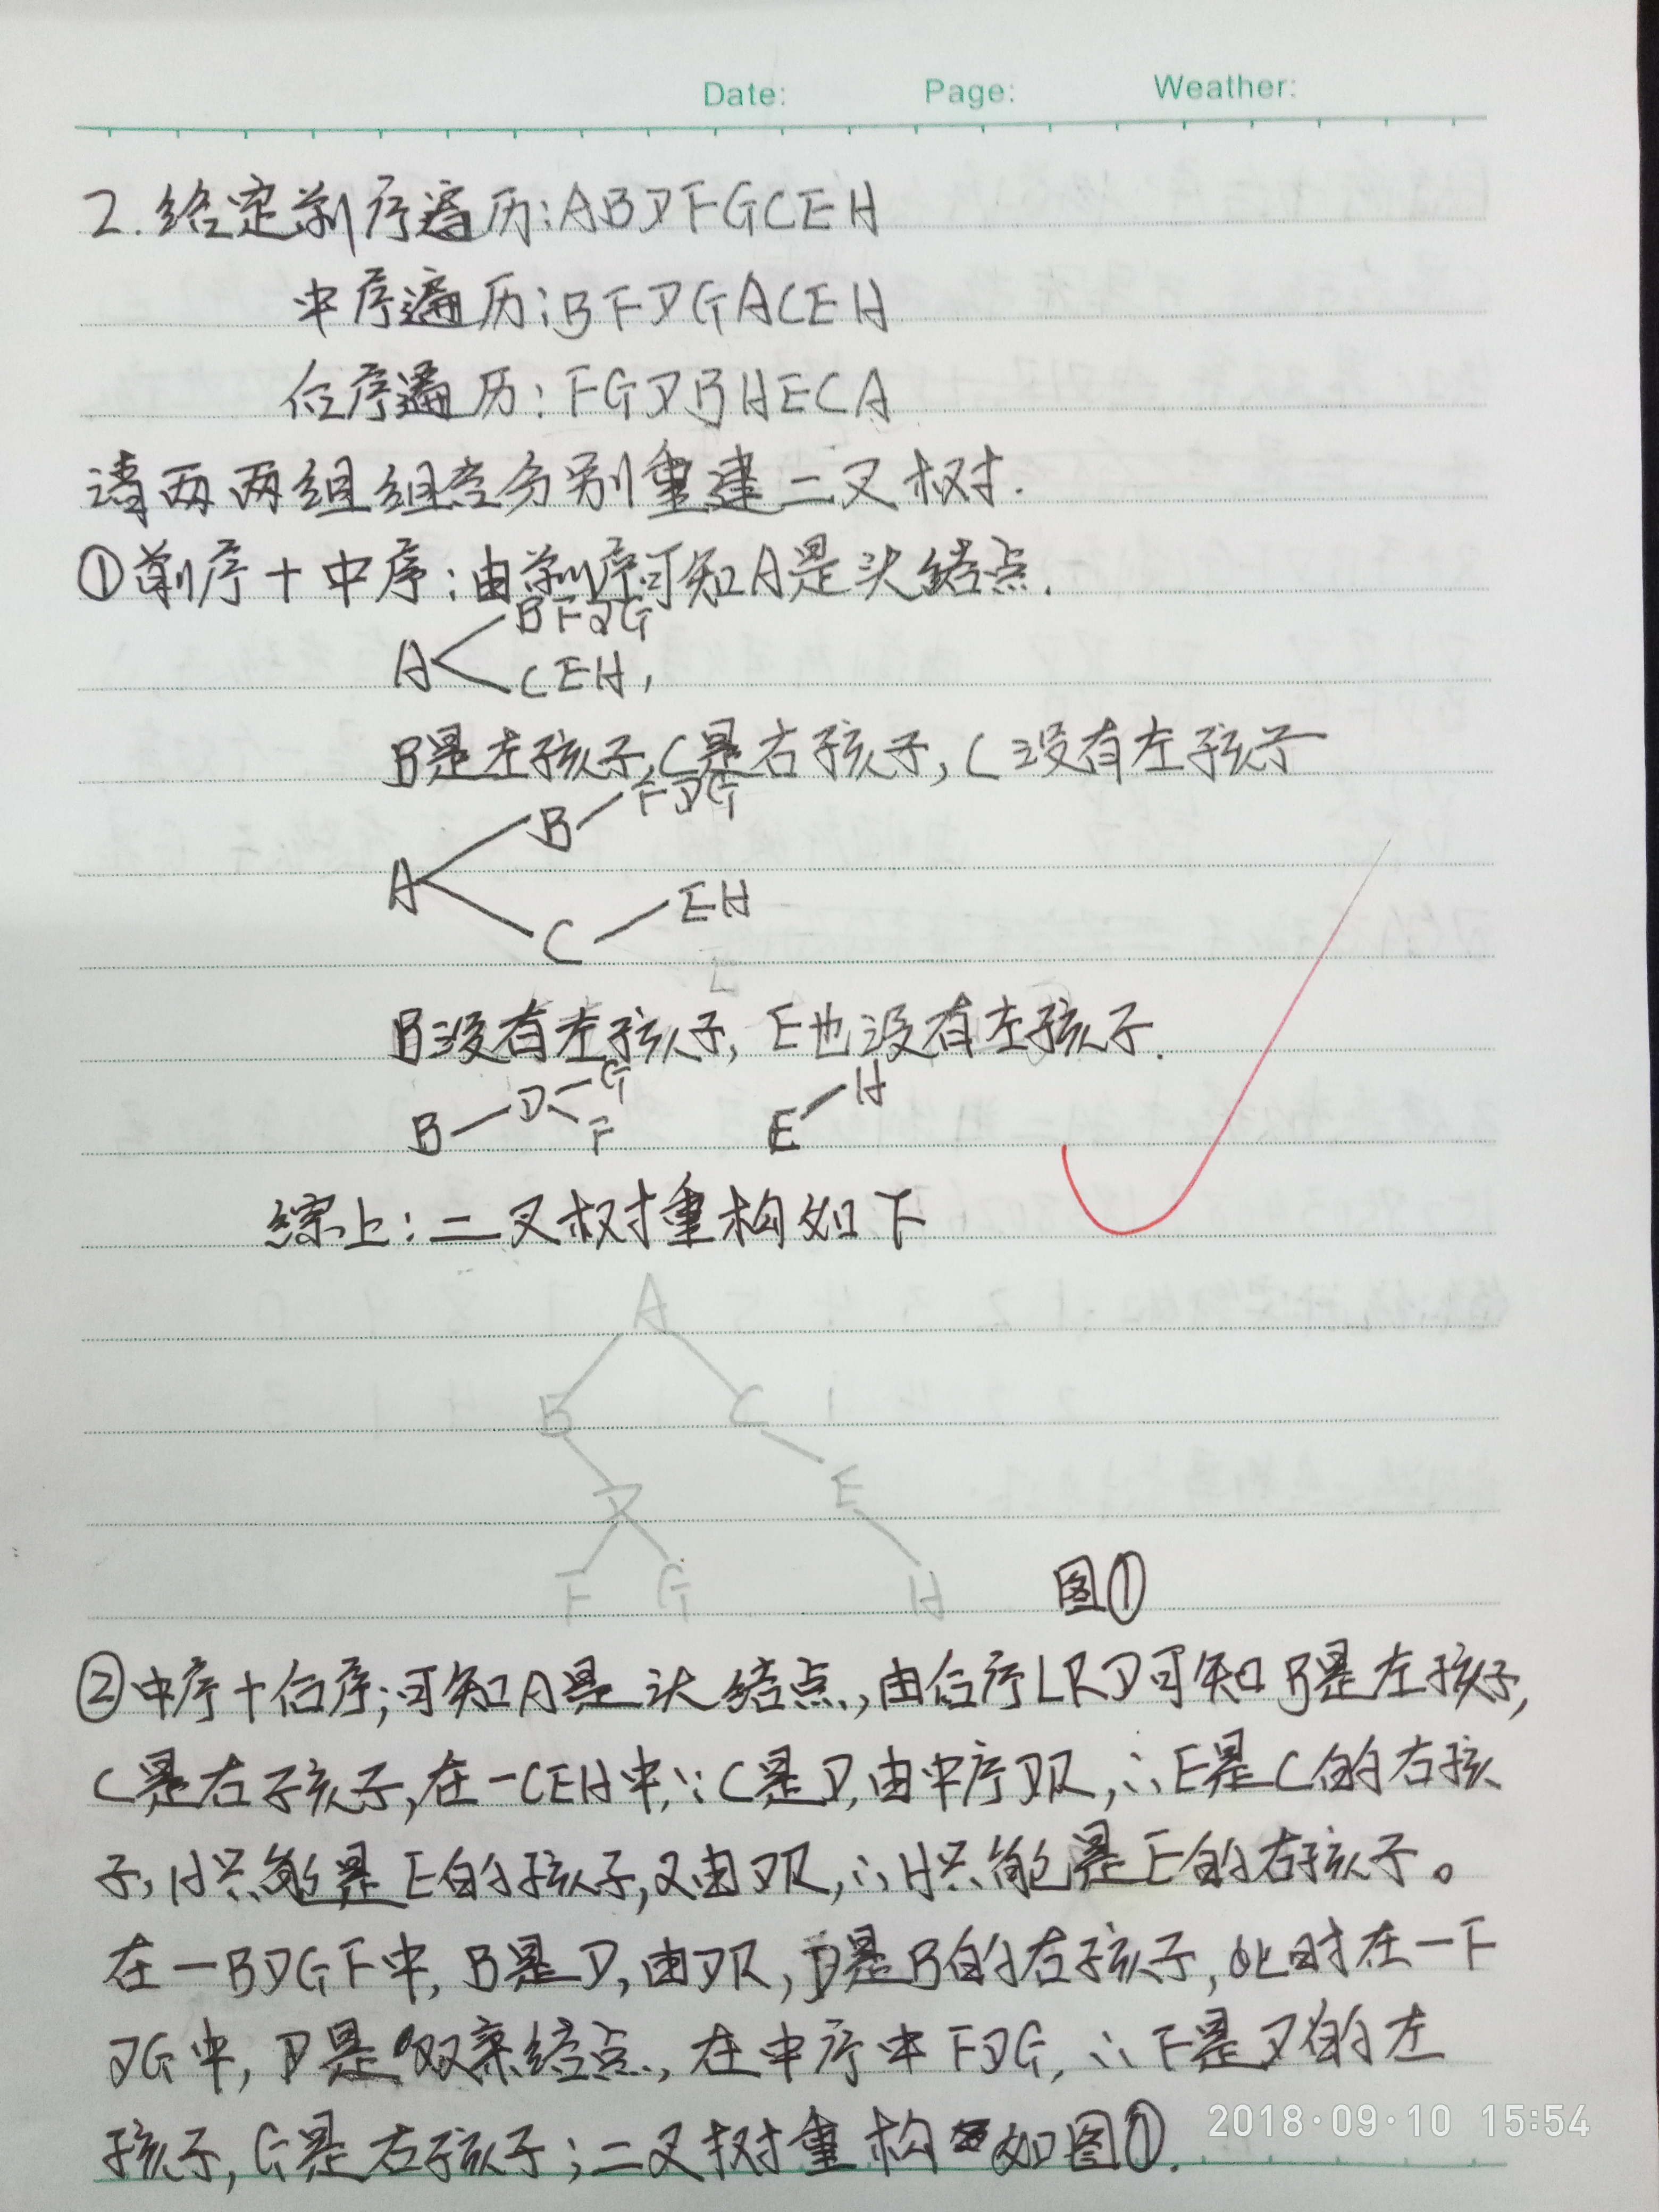 Date: Page: Weather:
2.给定前序遍历:ABDFGCEH
中序遍历:BFDGACEH
后序遍历:FGDBHECA
请两两组组合分别重建二叉树.
①前序+中序:由前序可知A是头结点.
BFDG
A
CEH,
B是左孩子,C是右孩子,C没有左孩子
FDG
B
A
EH
C
B没有左孩子,E也没有左孩子.
B D G F
E H
综上:二叉树重构如下
A
B C
D E
F G H
图①
②中序+后序;可知A是头结点,由后序LRD可知B是左孩子,
C是右孩子,在一CEH中,∵C是D,由中序DR,∴E是C的右孩
子,H只能是E的孩子,又由DR,∴H只能是E的右孩子。
在一BDGF中,B是D,由DR,D是B的右孩子,此时在一F
DG中,D是双亲结点,在中序中FDG,∴F是D的左
孩子,G是右孩子;二叉树重构如图①.
2018·09·10 15:54